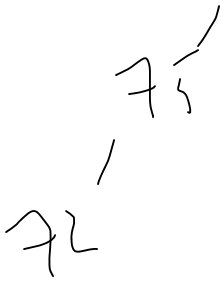 75
72